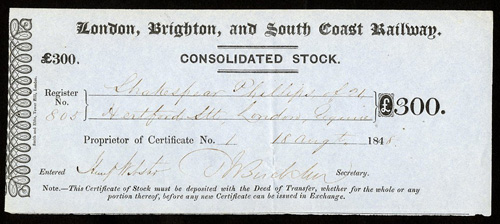 London, Brighton, and South Coast Railway.
£300. CONSOLIDATED STOCK.
Register Shakespear Phillips of 21
No. 805 Hertford Stt, London Esquire £300.
Proprietor of Certificate No. 1 18 Augt. 1848.
Entered Secretary.
Note.—This Certificate of Stock must be deposited with the Deed of Transfer, whether for the whole or any
portion thereof, before any new Certificate can be issued in Exchange.